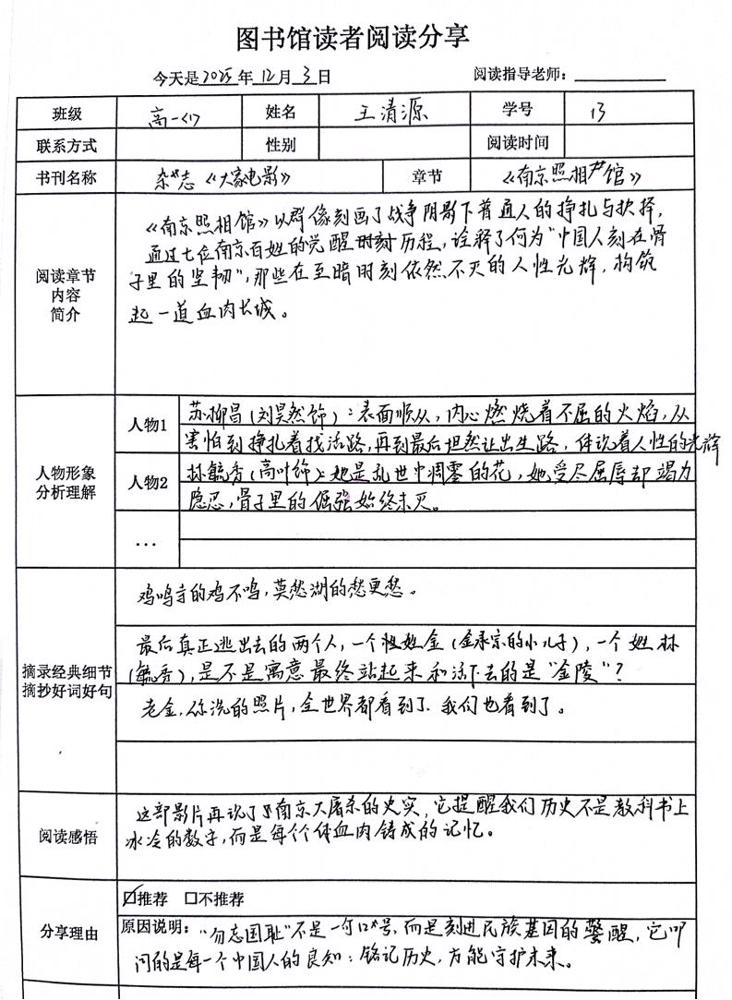 图书馆读者阅读分享
今天是2025年12月3日 阅读指导老师：
班级 高一(1) 姓名 王清源 学号 13
联系方式 性别 阅读时间
书刊名称 杂志《大家电影》 章节 《南京照相馆》
阅读章节
内容
简介
《南京照相馆》以群像刻画了战争阴影下普通人的挣扎与抉择，
通过七位南京百姓的觉醒时刻历程，诠释了何为“中国人刻在骨
子里的坚韧”，那些在至暗时刻依然不灭的人性光辉，构筑
起一道血肉长城。
人物形象
分析理解
人物1
苏柳昌（刘昊然饰）：表面顺从，内心燃烧着不屈的火焰，从
害怕到挣扎着找活路，再到最后坦然让出生路，体现着人性的光辉
人物2
林毓秀（高叶饰）：她是乱世中凋零的花，她受尽屈辱却竭力
隐忍，骨子里的倔强始终未灭。
…
摘录经典细节
摘抄好词好句
鸡鸣寺的鸡不鸣，莫愁湖的愁更愁。
最后真正逃出去的两个人，一个姓金（金承宗的小儿子），一个姓林
（毓秀），是不是寓意最终站起来和活下去的是“金陵”？
老金，你洗的照片，全世界都看到了，我们也看到了。
阅读感悟
这部影片再现了南京大屠杀的史实，它提醒我们历史不是教科书上
冰冷的数字，而是每个个体血肉铸成的记忆。
分享理由
☑推荐 □不推荐
原因说明：“勿忘国耻”不是一句口号，而是刻进民族基因的警醒，它叩
问的是每一个中国人的良知：铭记历史，方能守护未来。